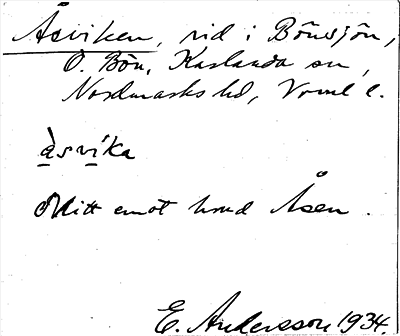 Åsviken, vid i Bönsjön,
O. Bön, Karlanda sn,
Nordmarks hd, Vrml l.
àsvíka
Mitt emot hmd Åsen.
E. Andersson 1934.